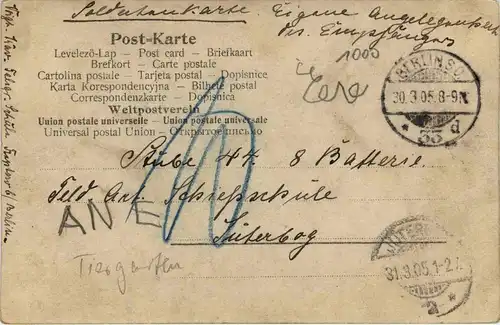 Soldatenkarte. Eigene Angelegenheit
des Empfängers
Post-Karte
Levelező-Lap — Post card — Briefkaart
Brefkort — Carte postale
Cartolina postale — Tarjeta postal — Dopisnice
Karta Korespondencyjna — Bilhete postal
Correspondenzkarte — Dopisnica
Weltpostverein
Union postale universelle — Unione postale universale
Universal postal Union — Открытое письмо
1000
BERLIN SO
30.3.05.8-9N.
* 33 d
Stube 4 8 Batterie.
Feld Art. Schießschule
ANE
Jüterbog
Tiergarten
JÜTERBOG
31.3.05.1-2
* a *